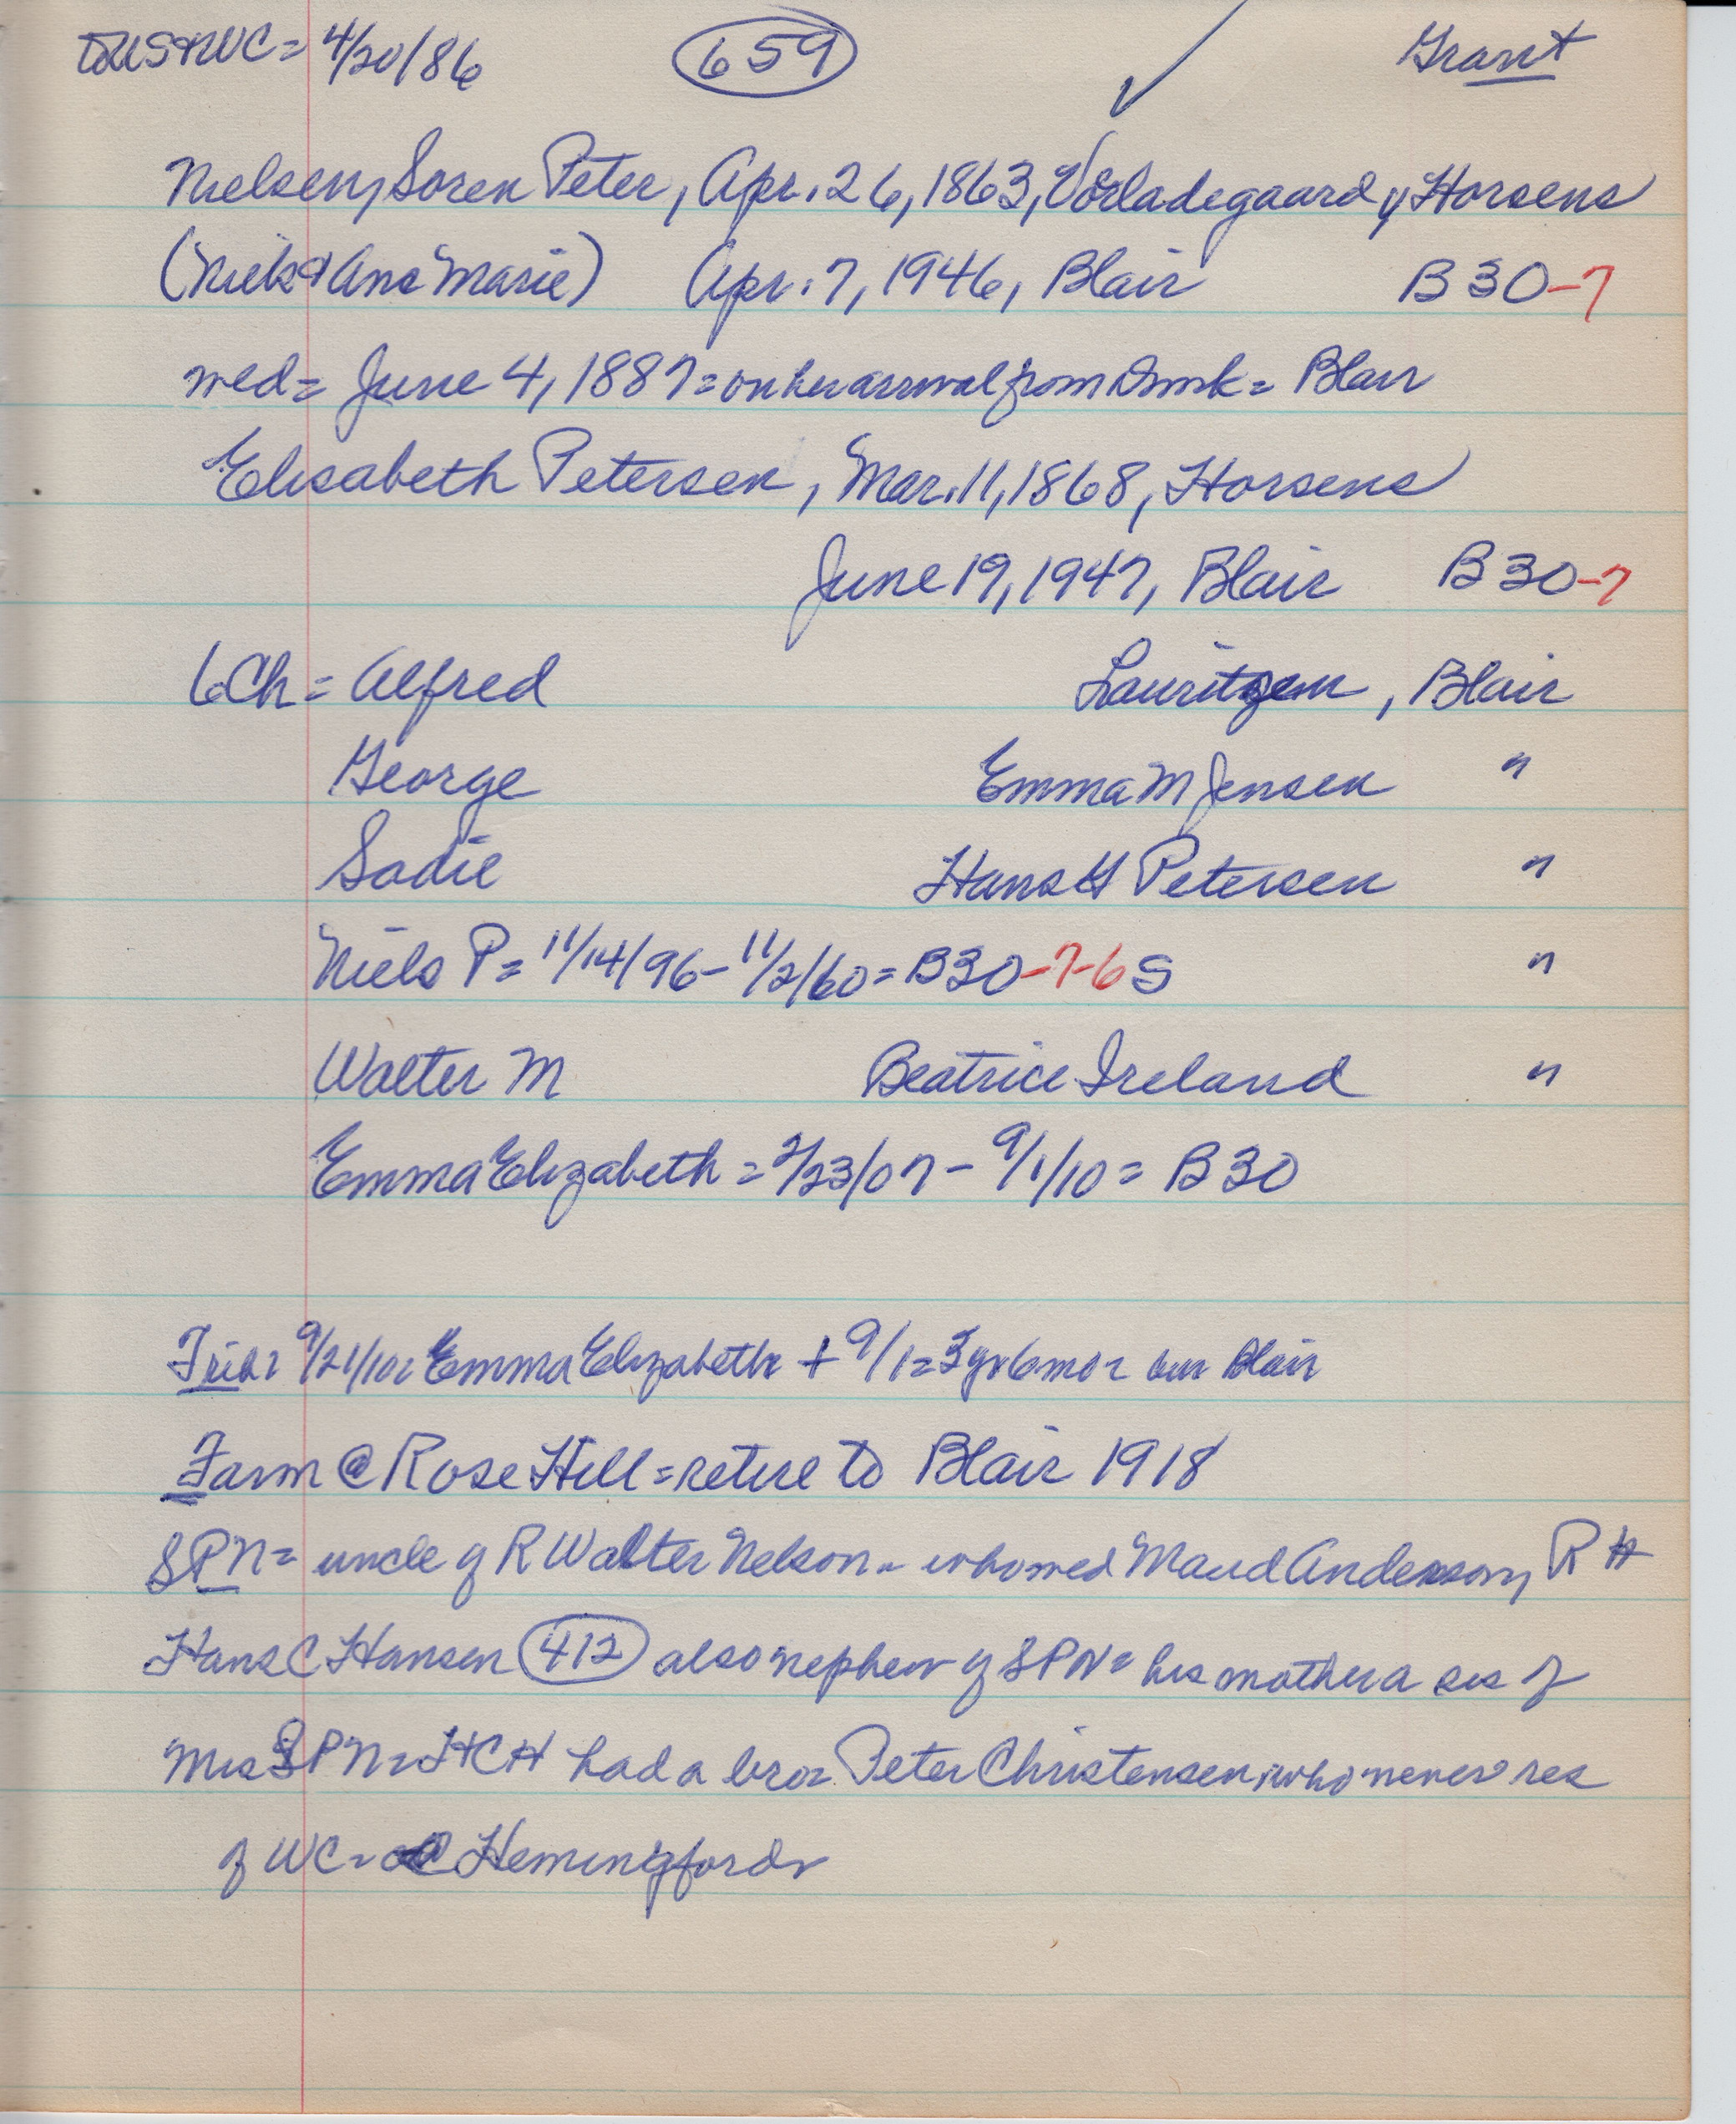 to US & WC = 4/20/86 659 ✓ Grant
Nielsen, Soren Peter, Apr. 26, 1863, Vorladegaard, Horsens
(Niels & Ane Marie) Apr. 7, 1946, Blair B 30-7
wed = June 4, 1887 = on her arrival from Dmk = Blair
Elisabeth Petersen, Mar. 11, 1868, Horsens
June 19, 1947, Blair B 30-7
6 Ch = Alfred Lauritzen, Blair
George Emma M Jensen "
Sadie Hans G Petersen "
Niels P = 11/14/96 - 11/2/60 = B30-7-6 S "
Walter M Beatrice Ireland "
Emma Elizabeth = 2/23/07 - 9/1/10 = B 30
Trib = 9/21/10 = Emma Elizabeth + 9/1 = 3 yr 6 mo = bur Blair
Farm @ Rose Hill = retire to Blair 1918
SPN = uncle of R Walter Nelson - who wed Maud Anderson, R H
Hans C Hansen 412 also nephew of SPN = his mother a sis of
Mrs SPN = HCH had a bro = Peter Christensen, who never res
of WC = Hemingford